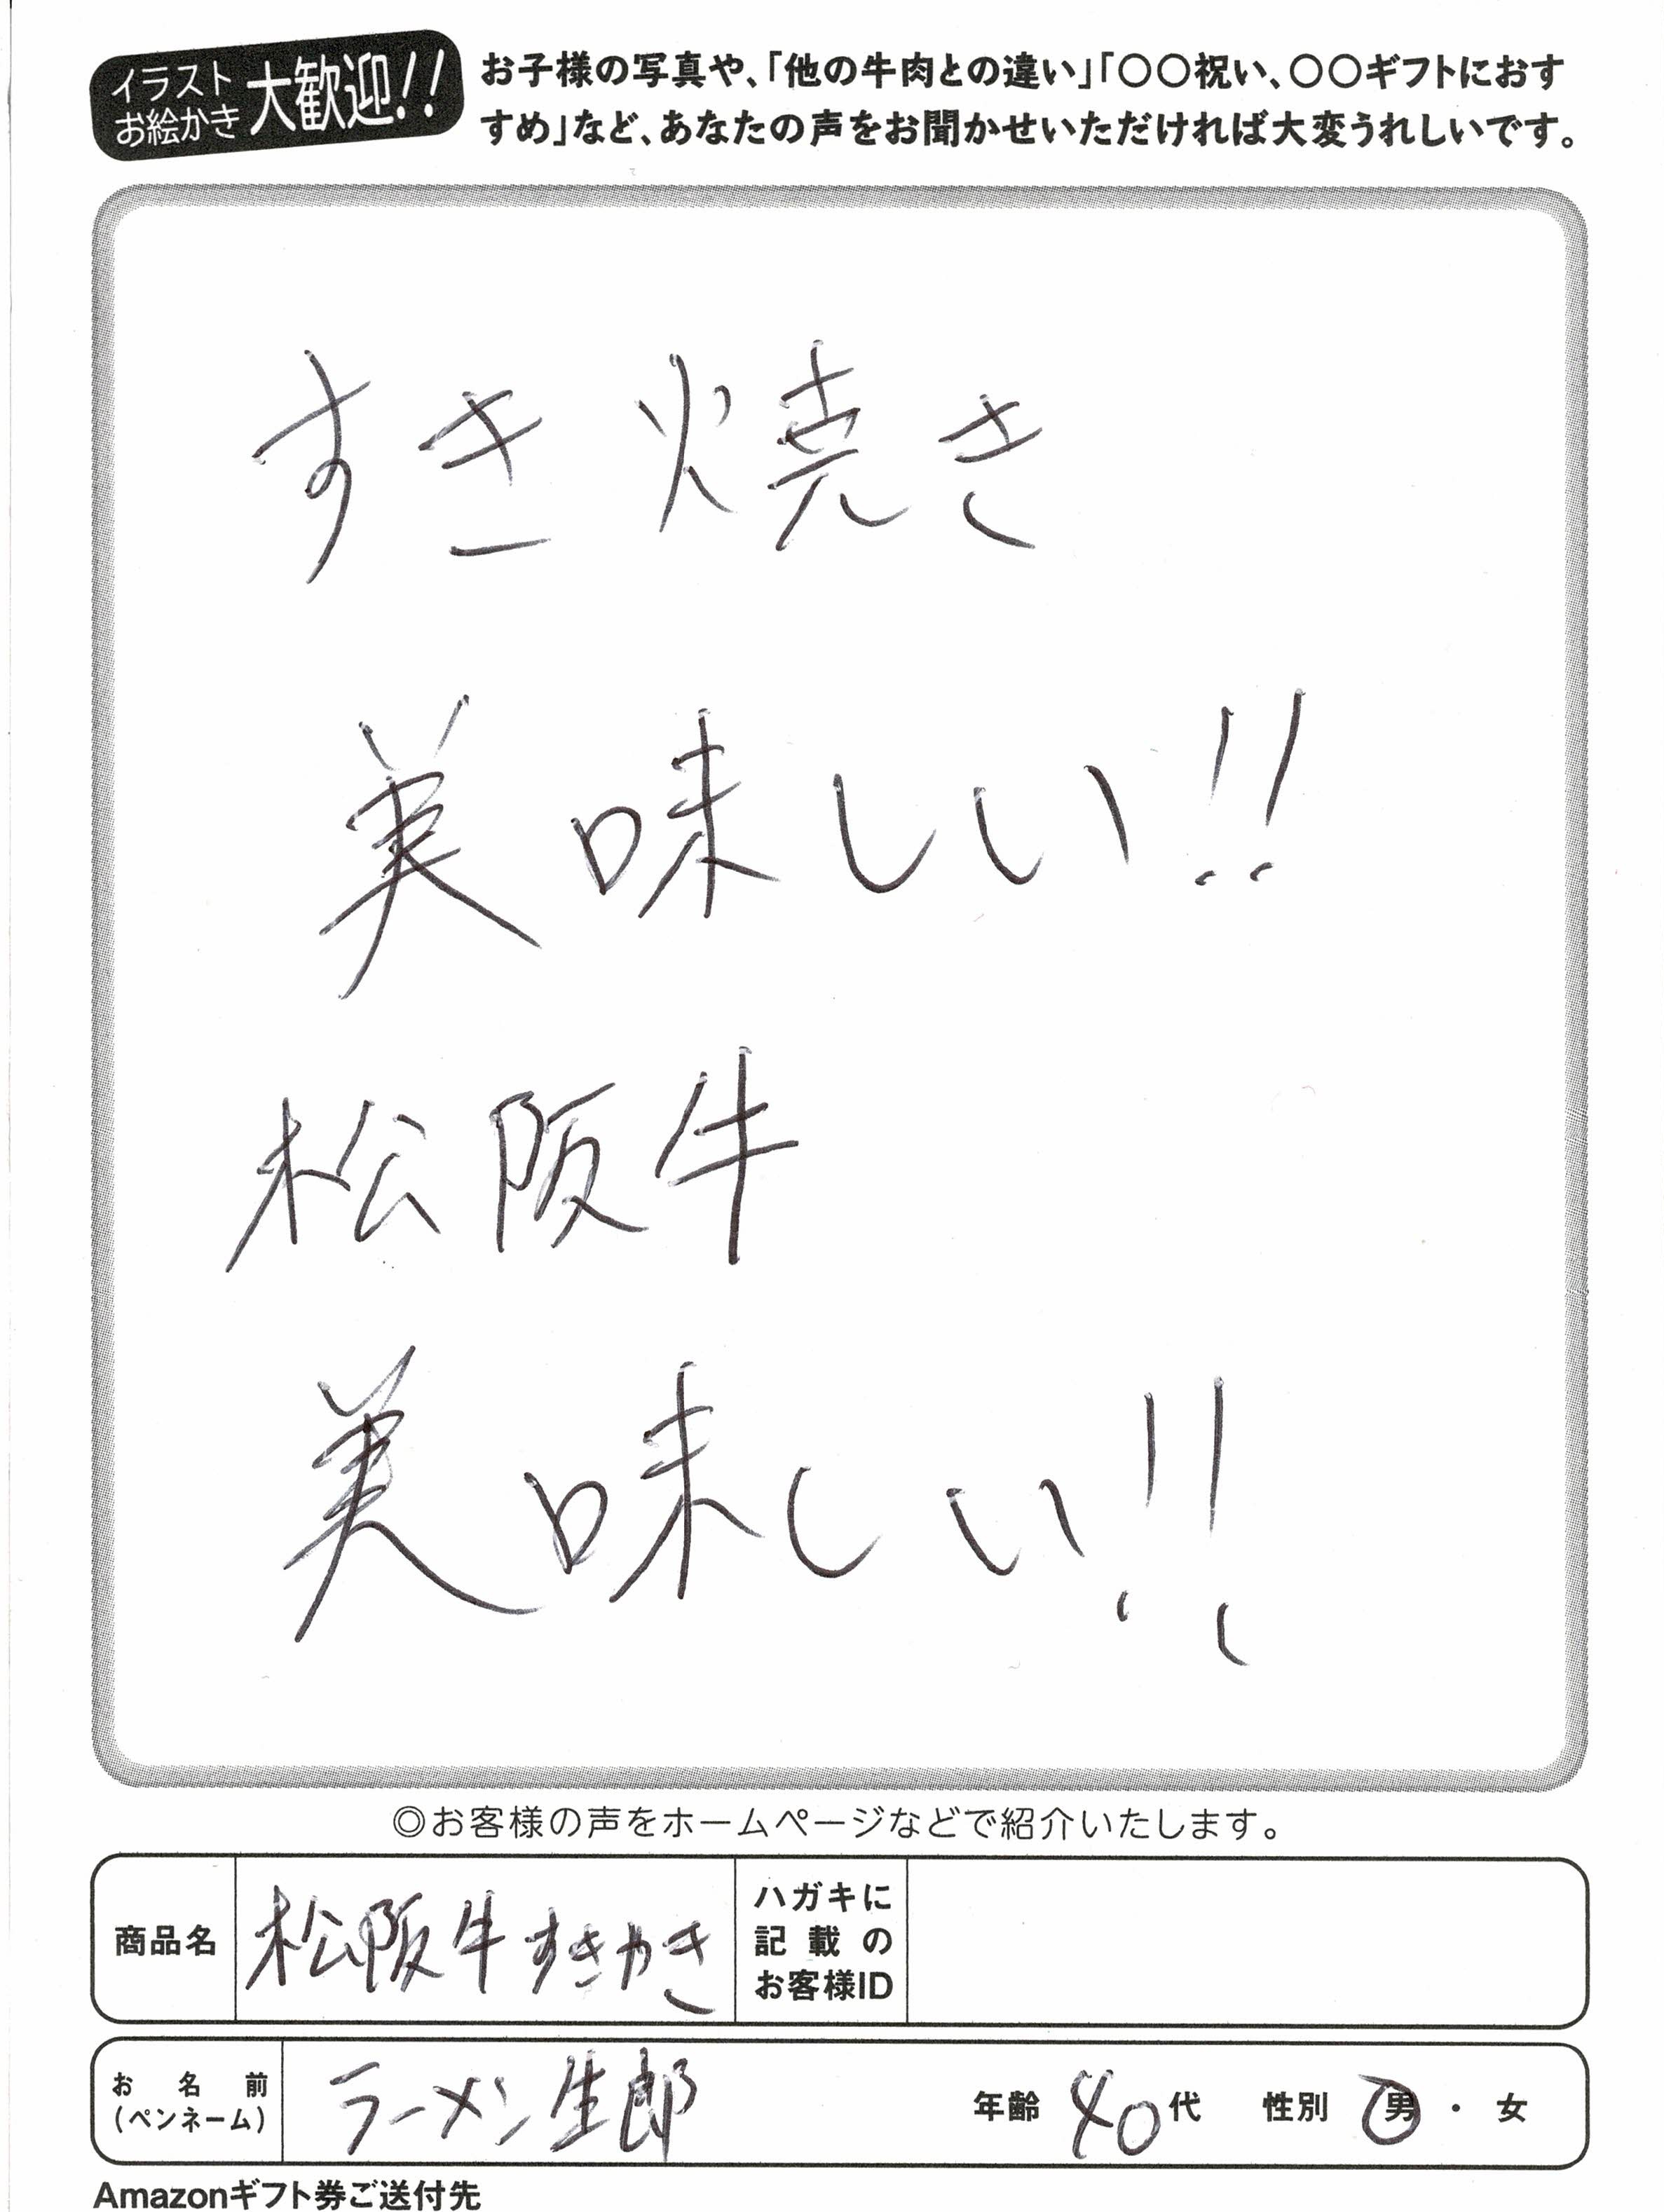 イラスト
お絵かき
大歓迎!!
お子様の写真や、「他の牛肉との違い」「〇〇祝い、〇〇ギフトにおす
すめ」など、あなたの声をお聞かせいただければ大変うれしいです。
すき焼き
美味しい!!
松阪牛
美味しい!!
◎お客様の声をホームページなどで紹介いたします。
商品名 松阪牛すきやき
ハガキに
記載の
お客様ID
お名前
(ペンネーム)
ラーメン生郎 年齢 40代 性別 男・女
Amazonギフト券ご送付先